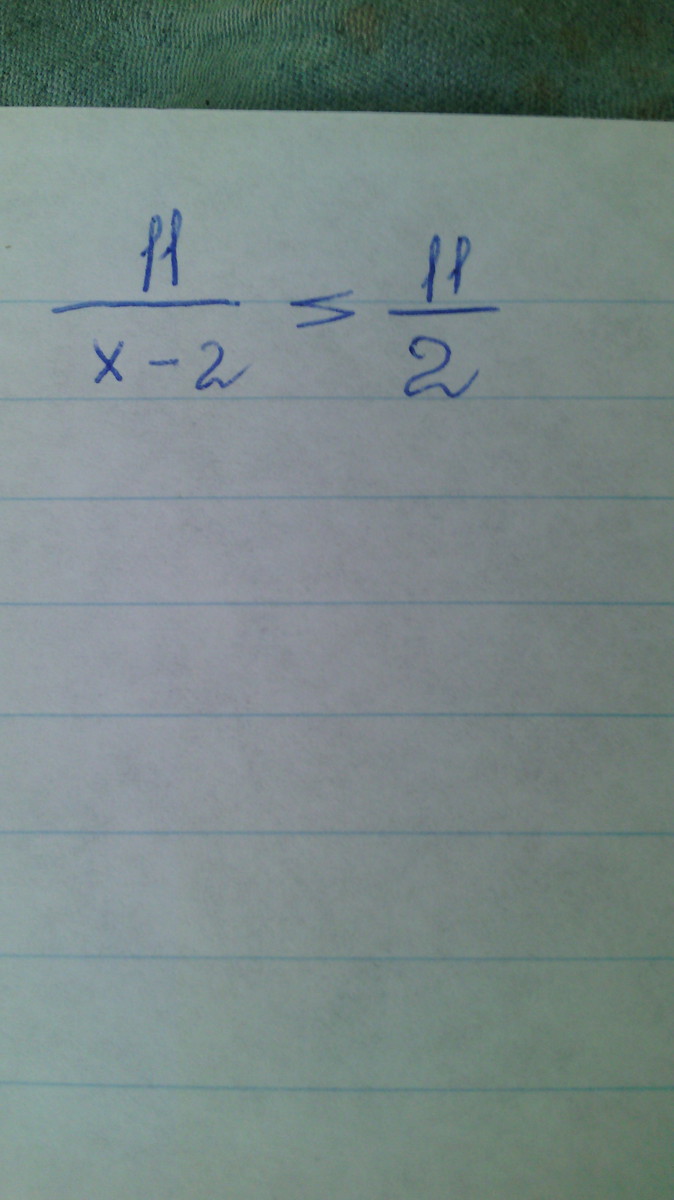 11/(x-2) ≤ 11/2